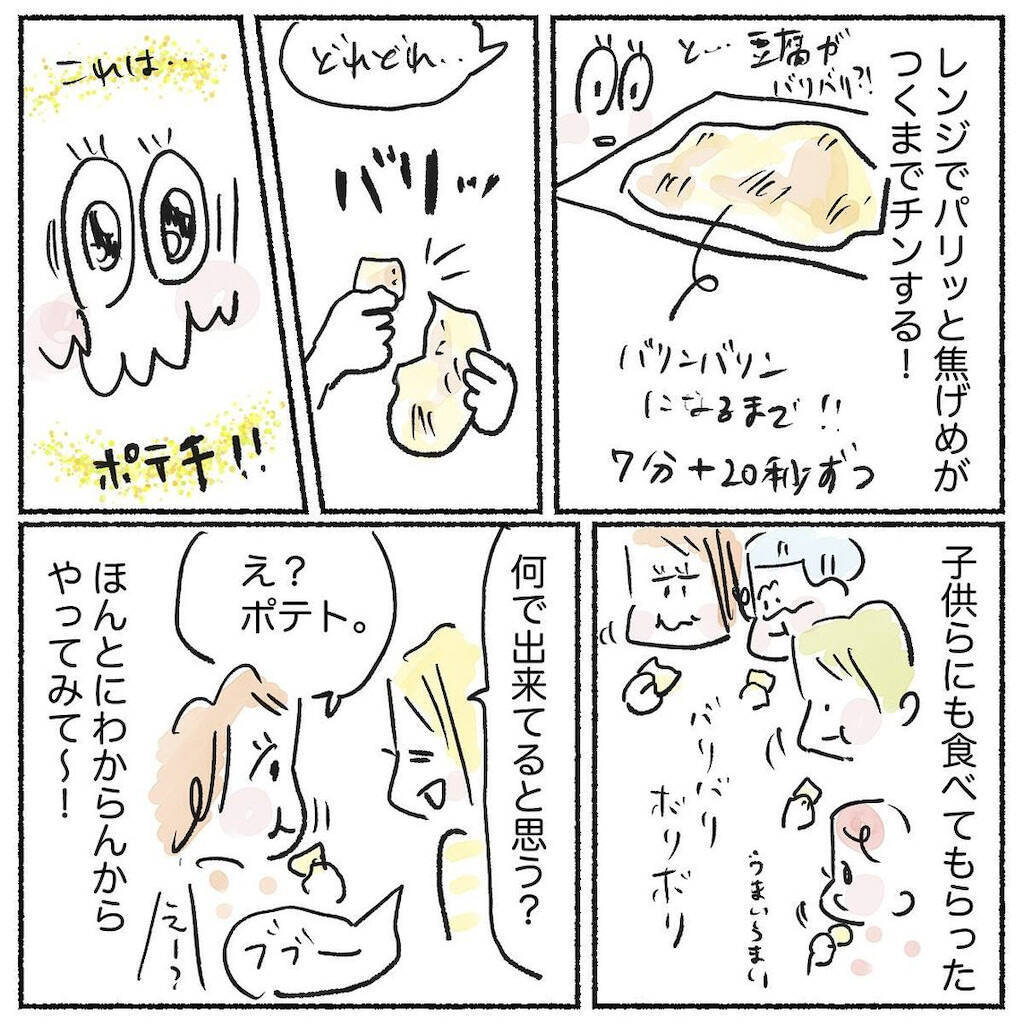 レンジでパリッと焦げめが
つくまでチンする！
と…豆腐が
バリバリ?!
バリンバリン
になるまで!!
7分+20秒ずつ
どれどれ‥
バリッ
これは‥
ポテチ!!
子供らにも食べてもらった
バリバリ
ボリボリ
うまいうまい
何で出来てると思う？
え？
ポテト。
ブブー
えー？
ほんとにわからんから
やってみて〜！